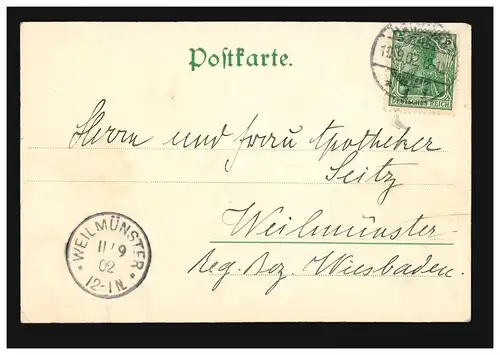 Postkarte.
11.9.02
DEUTSCHES REICH
Herrn und Frau Apotheker
Seitz
Weilmünster
Reg. Bez. Wiesbaden.
* WEILMÜNSTER *
11/9
02
12-1N.